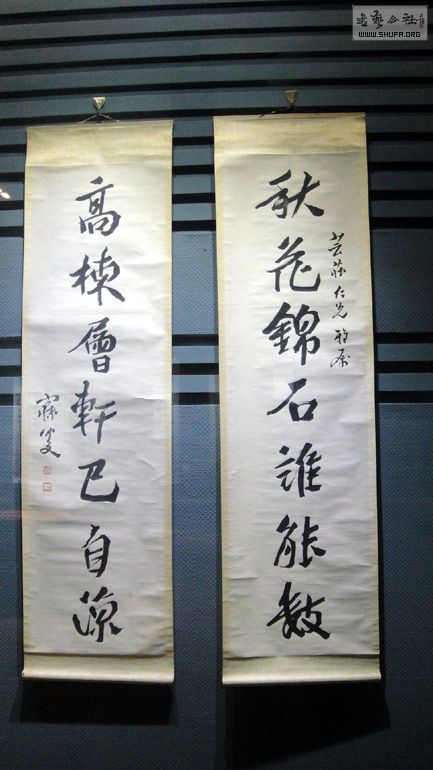 書藝公社
WWW.SHUFA.ORG
芸莊仁兄雅屬
秋花錦石誰能數
高棟層軒已自涼
寐叟